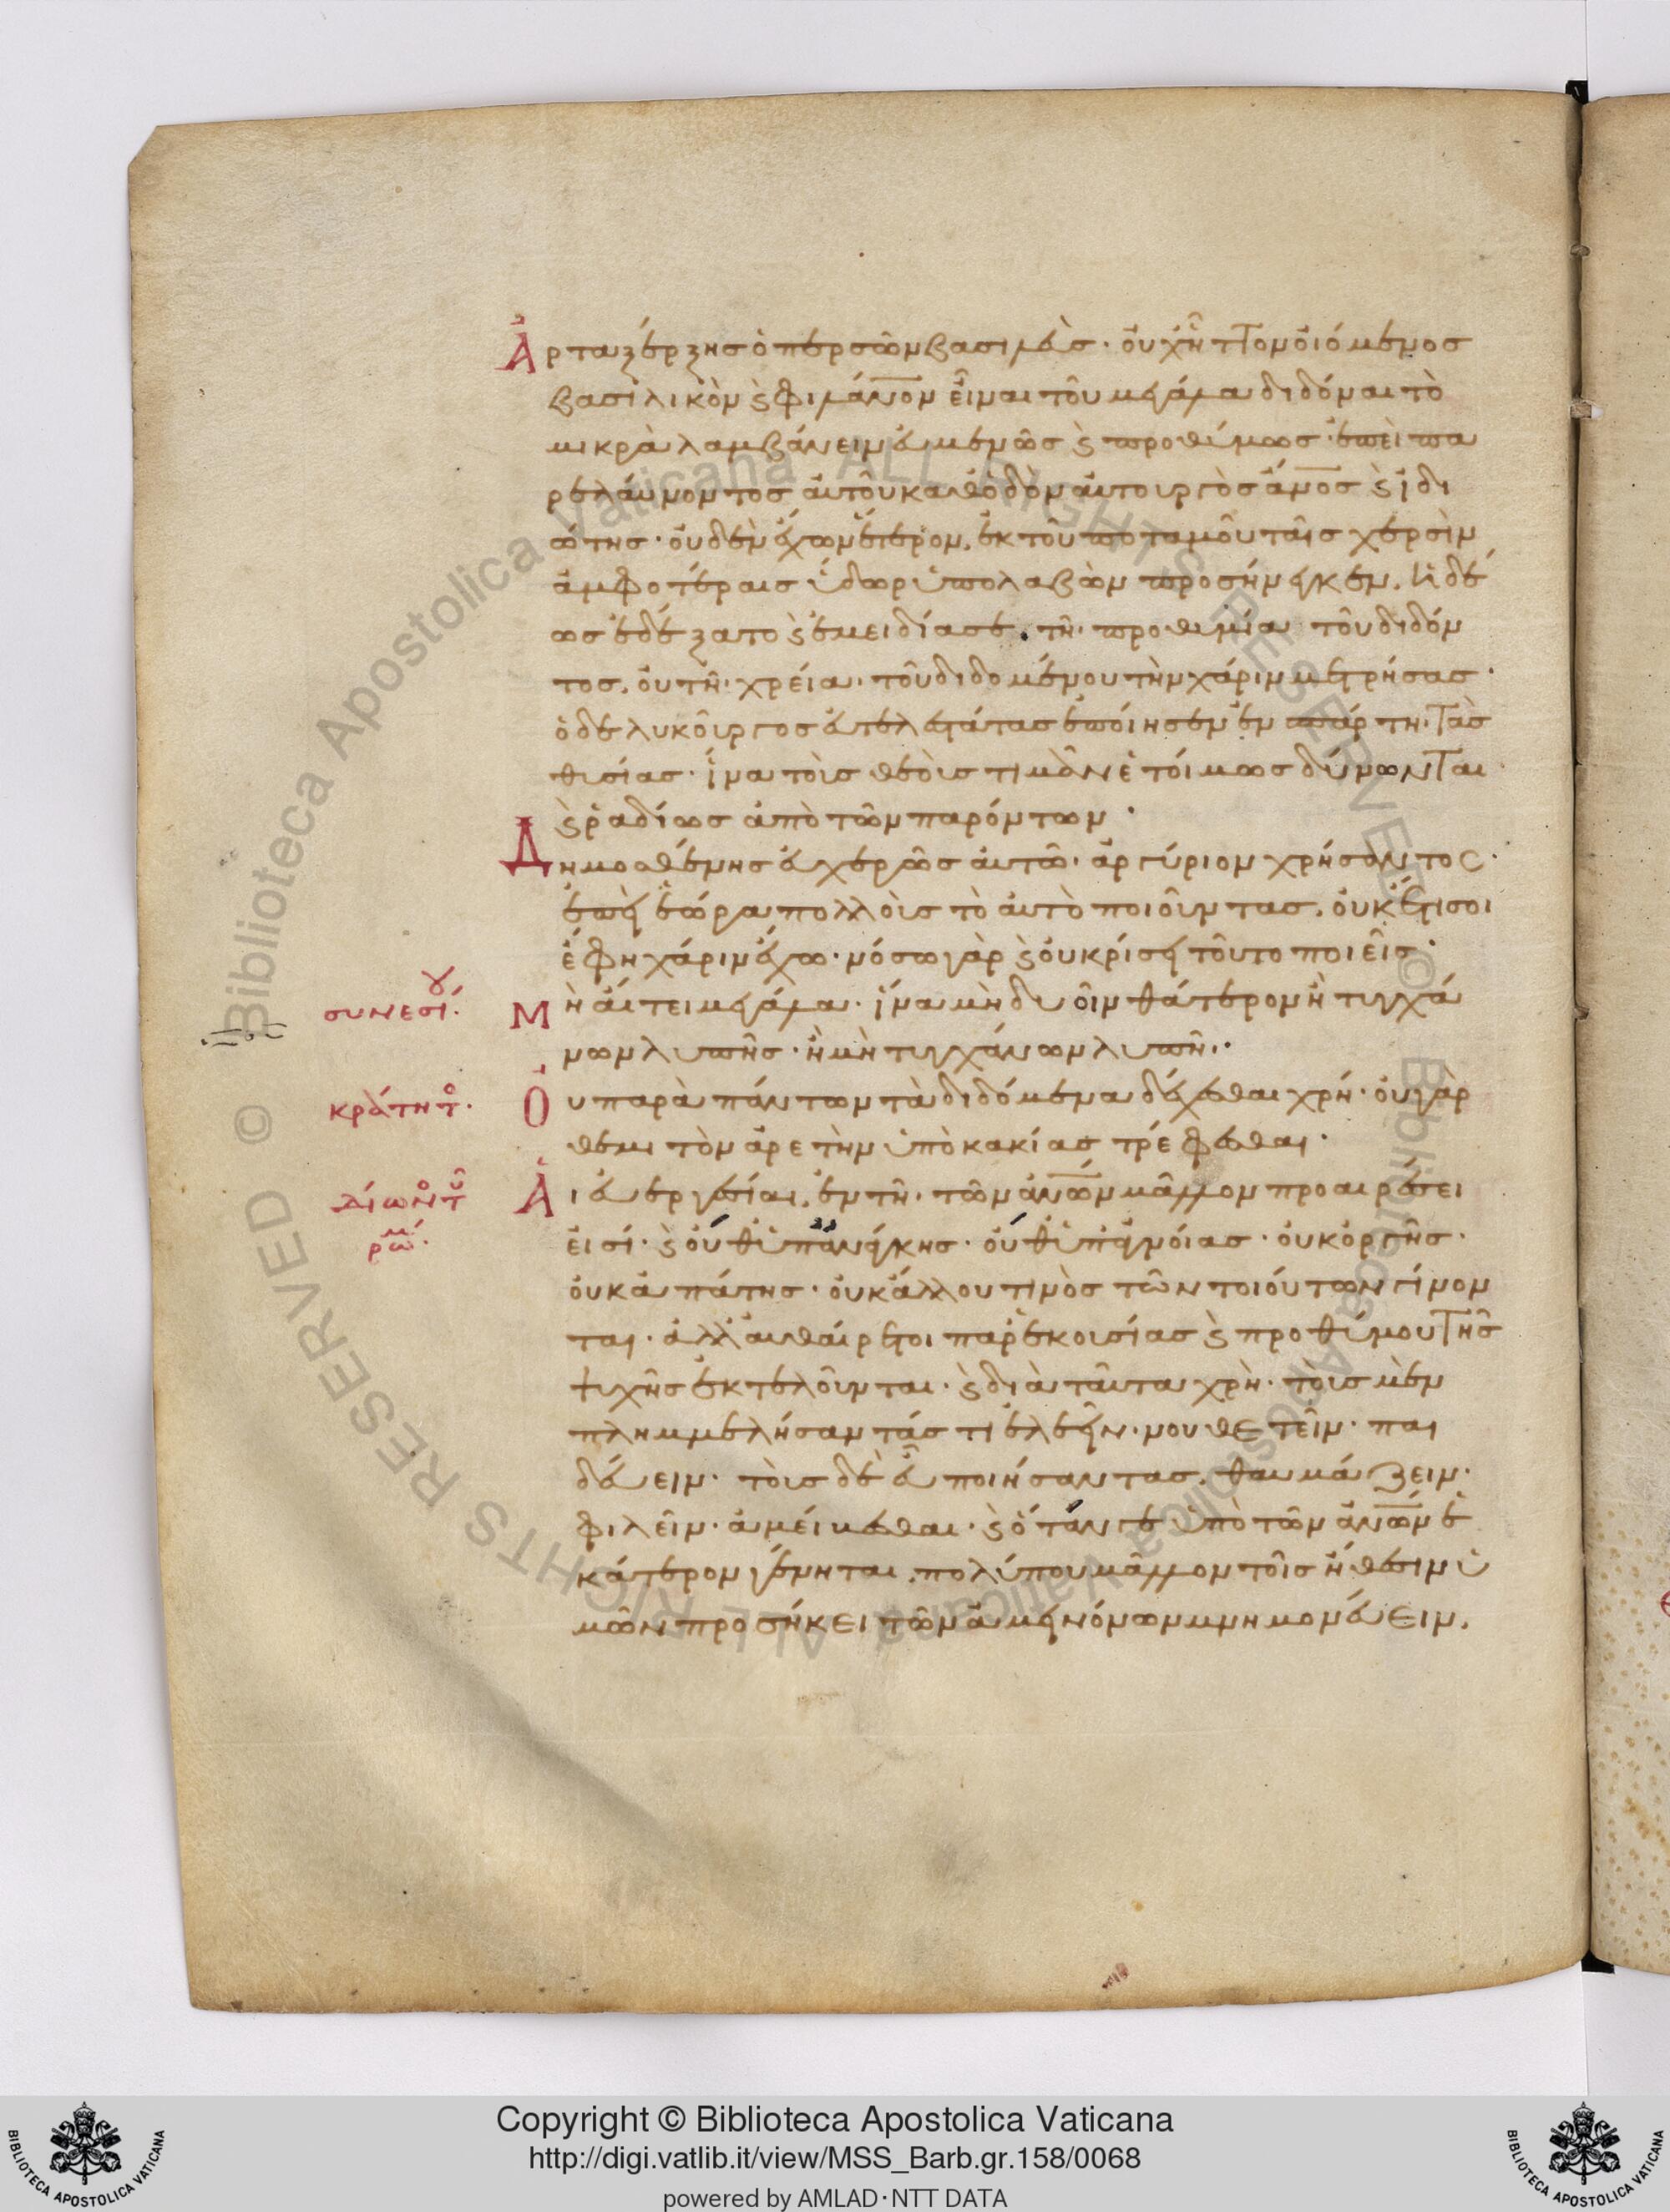 Ἀρταξέρξησ ὁ περσῶν βασιλεὺσ· οὐχ ἧττον οἰόμενοσ
βασιλικὸν ϗ φιλάνον εἶναι τοῦ μεγάλα διδόναι τὸ
μικρὰ λαμβάνειν εὐμενῶσ ϗ προθύμωσ· ἐπεὶ πα
ρελάυνοντοσ αὐτοῦ καθ ὁδὸν αὐτουργὸσ ἄνοσ ϗ ἰδι
ώτησ· οὐδὲν ἔχων ἕτερον, ἐκ τοῦ ποταμοῦ ταῖσ χερσὶν
ἀμφοτέραισ ὕδωρ ὑπολαβὼν προσήνεγκεν, ἡδέ
ωσ ἐδέξατο ϗ ἐμειδίασε, τῆι προθυμίαι τοῦ διδόν
τοσ, οὐ τῆι χρείαι τοῦ διδομένου τὴν χάριν μετρήσασ·
ὁ δὲ λυκοῦργοσ εὐτελεστάτασ ἐποίησεν ἐν σπάρτηι τὰσ
θυσίασ· ἵνα τοὺσ θεοὺσ τιμᾶν ἑτοίμωσ δύνωνται
ϗ ῥαδίωσ ἀπὸ τῶν παρόντων·
Δημοσθένησ εὐχερῶσ αὐτῶι ἀργύριον χρήσαντοσ·
ἐπεὶ ἑώρα πολλοὺσ τὸ αὐτὸ ποιοῦντασ, οὐκέτι σοι
ἔφη χάριν ἔχω· νόσωι γὰρ ϗ οὐ κρίσει τοῦτο ποιεῖσ·
συνεσίου. Μὴ αἰτει μεγάλα· ἵνα μὴ δυοῖν θάτερον ἢ τυγχά
νων λυπῆσ· ἢ μὴ τυγχάνων λυπῆι·
κράτητος. Ὀυ παρὰ πάντων τὰ διδόμενα δέχεσθαι χρή· οὐ γὰρ
θεμιτὸν ἀρετὴν ὑπὸ κακίασ τρέφεσθαι·
Δίωνος τοῦ Ἁι εὐεργεσίαι, ἐν τῆι τῶν ἀνων μᾶλλον προαιρέσει
ρωμ. εἰσί· ϗ οὔθ ὑπ ἀνάγκησ· οὔθ ὑπ ἀγνοίασ· οὐκ ὀργῆσ·
οὐκ ἀπάτησ· οὐκ ἄλλου τινὸσ τῶν τοιούτων γίνον
ται· ἀλλ αὐθαίρετοι παρ ἑκουσίασ ϗ προθύμου τῆσ
ψυχῆσ ἐκτελοῦνται· ϗ διὰ ταῦτα χρὴ· τοὺσ μὲν
πλημμελήσαντάσ τι ἐλεεῖν· νουθετεῖν· παι
δεύειν· τοὺσ δὲ εὖ ποιήσαντασ, θαυμάζειν·
φιλεῖν· ἀμείβεσθαι· ϗ ὅταν γε ὑπὸ τῶν ἀνων ἑ
κάτερον γένηται, πολύ που μᾶλλον τοῖσ ἤθεσιν ὑ
μῶν προσήκει τῶν ἀμεινόνων μνημονεύειν.
Copyright © Biblioteca Apostolica Vaticana
http://digi.vatlib.it/view/MSS_Barb.gr.158/0068
powered by AMLAD·NTT DATA